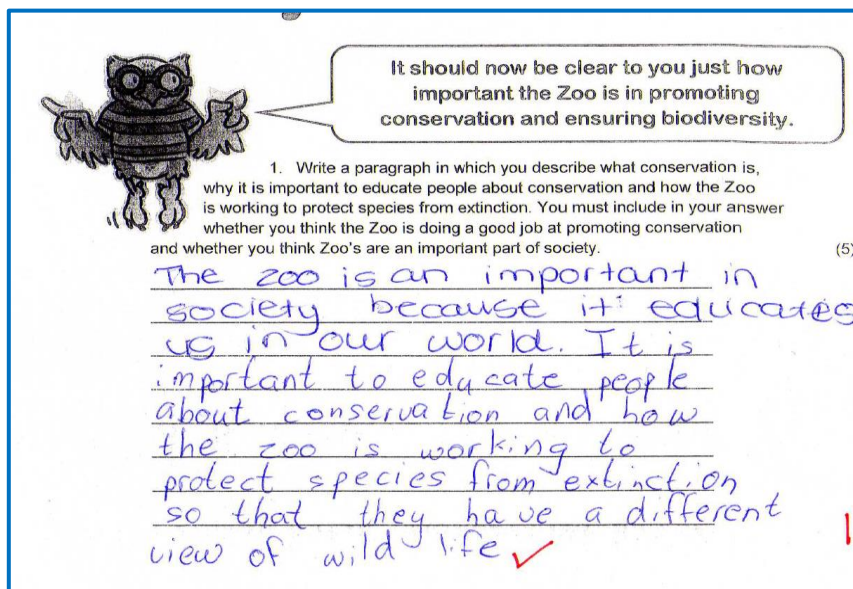 It should now be clear to you just how
important the Zoo is in promoting
conservation and ensuring biodiversity.
1. Write a paragraph in which you describe what conservation is,
why it is important to educate people about conservation and how the Zoo
is working to protect species from extinction. You must include in your answer
whether you think the Zoo is doing a good job at promoting conservation
and whether you think Zoo's are an important part of society. (5)
The zoo is an important in
society because it educates
us in our world. It is
important to educate people
about conservation and how
the zoo is working to
protect species from extinction
so that they have a different
view of wild life